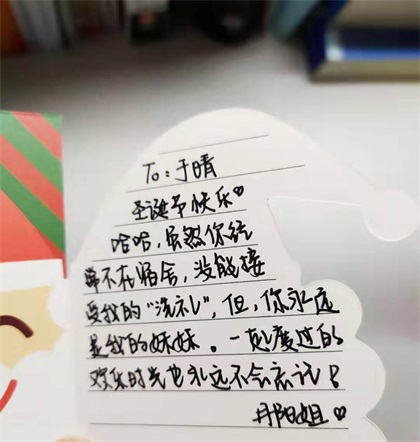 To：于晴
圣诞节快乐♡
哈哈，虽然你经
常不在宿舍，没能接
受我的“洗礼”，但，你永远
是我的妹妹。一起度过的
欢乐时光也永远不会忘记！
姐♡